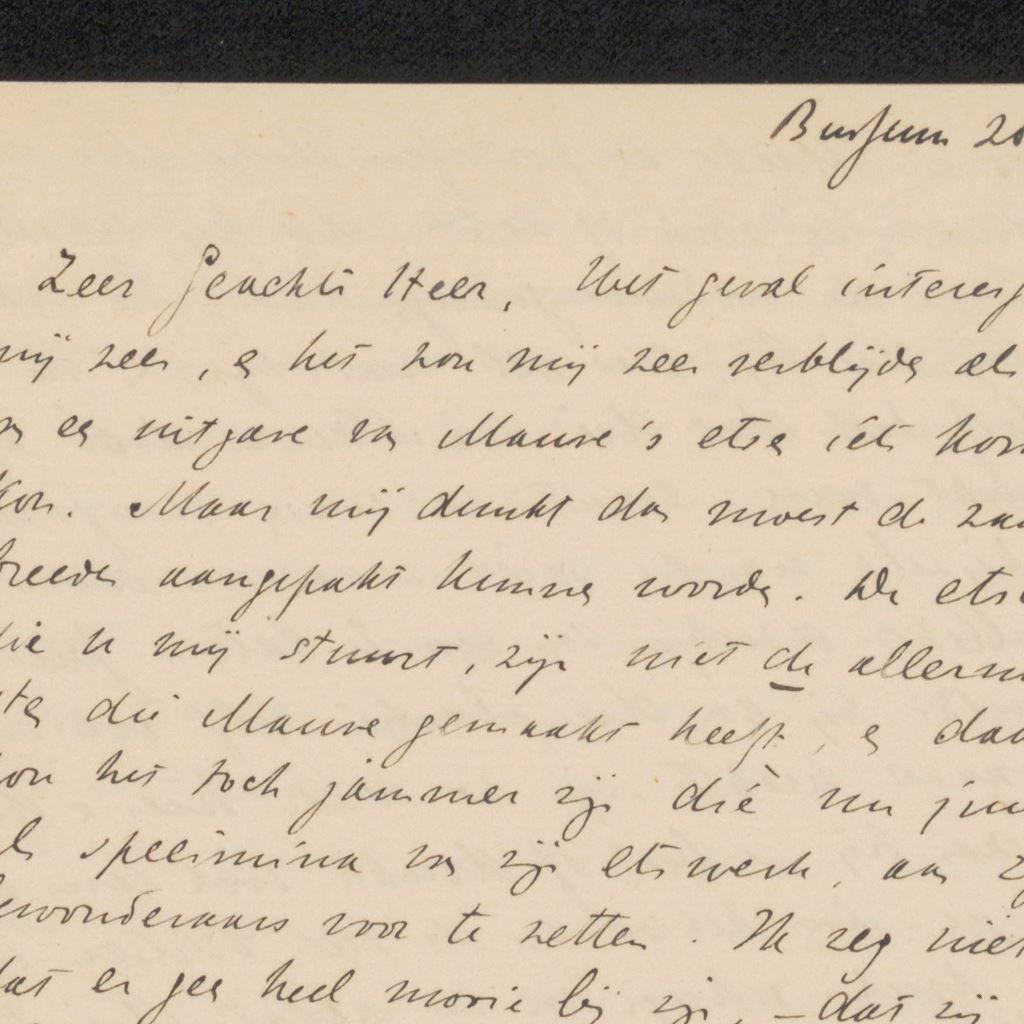 Bussum 20
Zeer Geachte Heer, Het geval interess
mij zeer, en het zou mij zeer verblijden als
van een uitgave van Mauve's etsen iets kom
kon. Maar mij dunkt dan moest de zaa
breeder aangepakt kunnen worden. De etse
die u mij stuurt, zijn niet de allerm
sten die Mauve gemaakt heeft, en daa
zou het toch jammer zijn dié nu jui
als specimina van zijn etswerk, aan zij
bewonderaars voor te zetten. Ik zeg niet
dat er geen heel mooie bij zijn, – dat zij